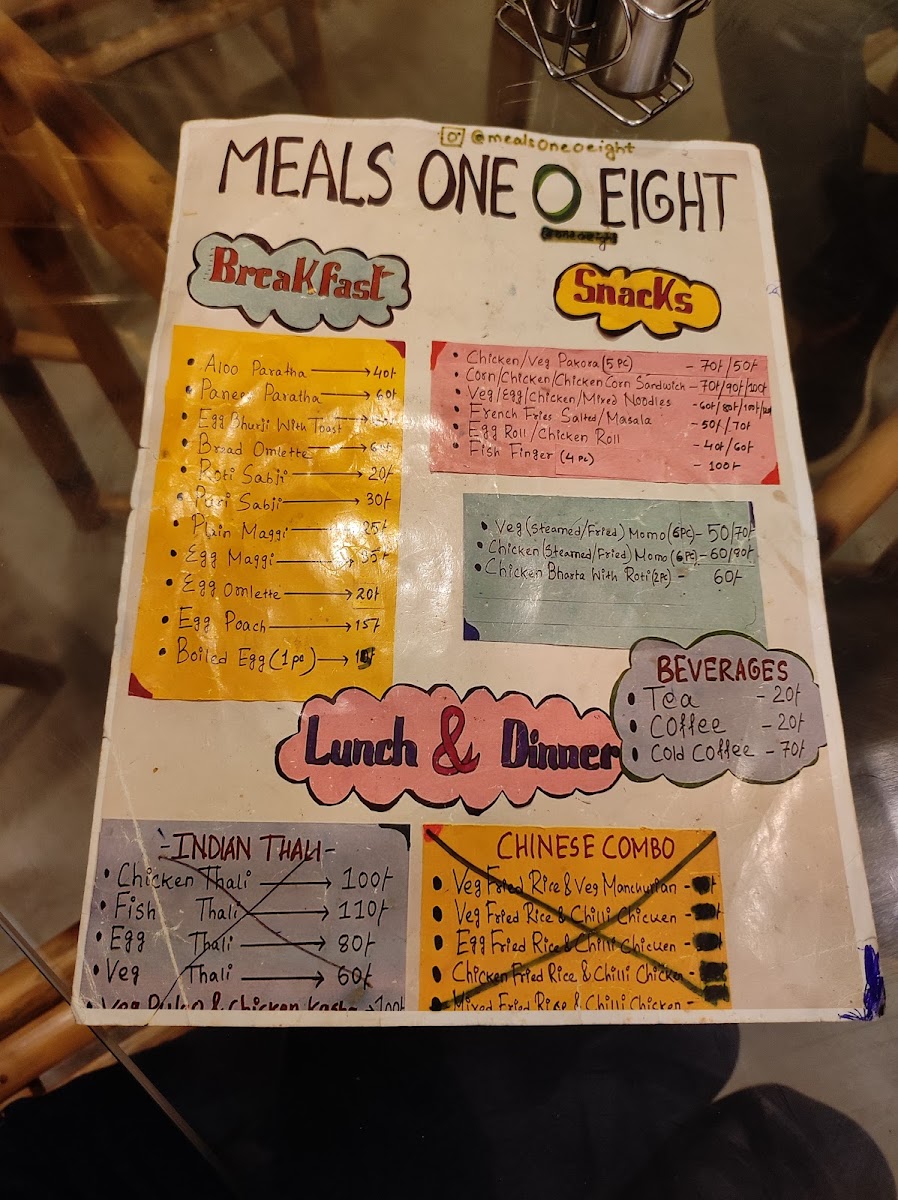 @mealsoneoeight
MEALS ONE O EIGHT
Breakfast
Aloo Paratha 40/-
Paneer Paratha 60/-
Egg Bhurji With Toast
Bread Omlette
Roti Sabji 20/-
Puri Sabji 30/-
Plain Maggi 25/-
Egg Maggi 35/-
Egg Omlette 20/-
Egg Poach 15/-
Boiled Egg (1pc)
Snacks
Chicken/Veg Pakora (5 PC) - 70/-/50/-
Corn/Chicken/Chicken Corn Sandwich - 70/-/90/-/100/-
Veg/Egg/Chicken/Mixed Noodles - 60/-/80/-/100/-
French Fries Salted/Masala - 50/-/70/-
Egg Roll/Chicken Roll - 40/-/60/-
Fish Finger (4 PC) - 100/-
Veg (Steamed/Fried) Momo (6PC) - 50/70/-
Chicken (Steamed/Fried) Momo (6 PC) - 60/90/-
Chicken Bharta With Roti (2PC) - 60/-
BEVERAGES
Tea - 20/-
Coffee - 20/-
Cold Coffee - 70/-
Lunch & Dinner
- INDIAN THALI -
Chicken Thali 100/-
Fish Thali 110/-
Egg Thali 80/-
Veg Thali 60/-
Veg Pulao & Chicken Kasha 100/-
CHINESE COMBO
Veg Fried Rice & Veg Manchurian -
Veg Fried Rice & Chilli Chicken -
Egg Fried Rice & Chilli Chicken -
Chicken Fried Rice & Chilli Chicken -
Mixed Fried Rice & Chilli Chicken -